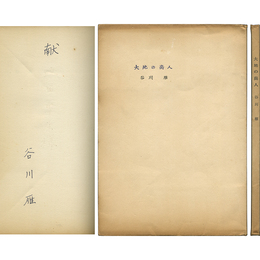 献
谷川雁
大地の商人
谷川雁
大地の商人
谷川雁